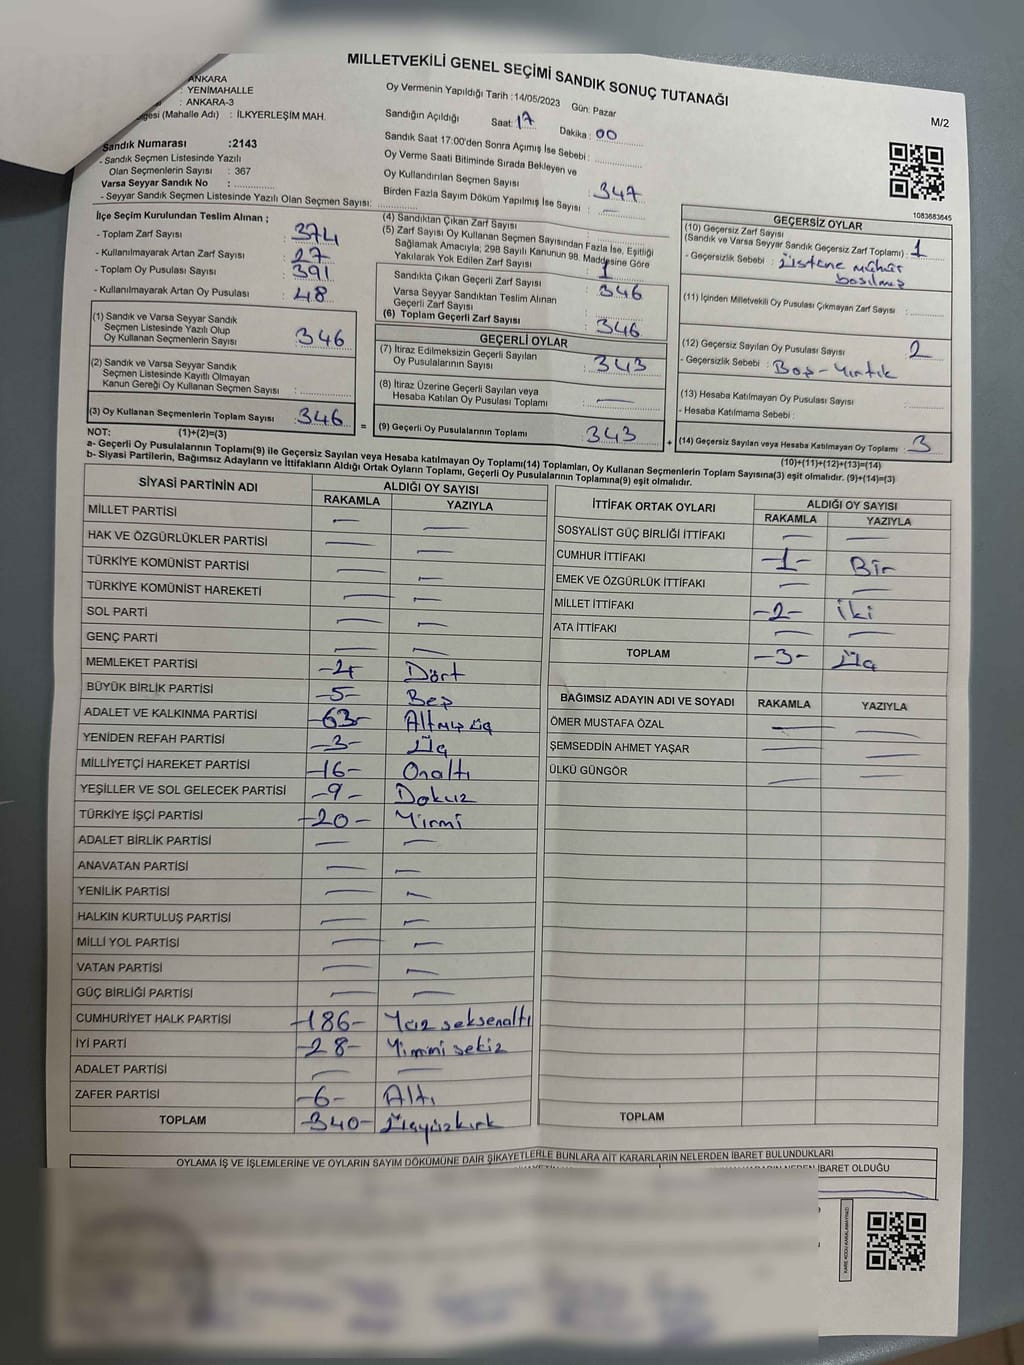 MİLLETVEKİLİ GENEL SEÇİMİ SANDIK SONUÇ TUTANAĞI
M/2
ANKARA
: YENİMAHALLE
: ANKARA-3
(Mahalle Adı) : İLKYERLEŞİM MAH.
Sandık Numarası :2143
- Sandık Seçmen Listesinde Yazılı
Olan Seçmenlerin Sayısı : 367
Varsa Seyyar Sandık No :
- Seyyar Sandık Seçmen Listesinde Yazılı Olan Seçmen Sayısı:
Oy Vermenin Yapıldığı Tarih :14/05/2023 Gün: Pazar
Sandığın Açıldığı Saat: 17 Dakika : 00
Sandık Saat 17:00'den Sonra Açımış İse Sebebi :
Oy Verme Saati Bitiminde Sırada Bekleyen ve
Oy Kullandırılan Seçmen Sayısı : 347
Birden Fazla Sayım Döküm Yapılmış İse Sayısı : —
1083683645
İlçe Seçim Kurulundan Teslim Alınan ;
- Toplam Zarf Sayısı : 374
- Kullanılmayarak Artan Zarf Sayısı : 27
- Toplam Oy Pusulası Sayısı : 391
- Kullanılmayarak Artan Oy Pusulası : 48
(1) Sandık ve Varsa Seyyar Sandık
Seçmen Listesinde Yazılı Olup
Oy Kullanan Seçmenlerin Sayısı : 346
(2) Sandık ve Varsa Seyyar Sandık
Seçmen Listesinde Kayıtlı Olmayan
Kanun Gereği Oy Kullanan Seçmen Sayısı :
(3) Oy Kullanan Seçmenlerin Toplam Sayısı : 346
(1)+(2)=(3)
(4) Sandıktan Çıkan Zarf Sayısı
(5) Zarf Sayısı Oy Kullanan Seçmen Sayısından Fazla İse, Eşitliği
Sağlamak Amacıyla; 298 Sayılı Kanunun 98. Maddesine Göre
Yakılarak Yok Edilen Zarf Sayısı : 1
Sandıkta Çıkan Geçerli Zarf Sayısı : 346
Varsa Seyyar Sandıktan Teslim Alınan
Geçerli Zarf Sayısı
(6) Toplam Geçerli Zarf Sayısı : 346
GEÇERLİ OYLAR
(7) İtiraz Edilmeksizin Geçerli Sayılan
Oy Pusulalarının Sayısı : 343
(8) İtiraz Üzerine Geçerli Sayılan veya
Hesaba Katılan Oy Pusulası Toplamı : —
= (9) Geçerli Oy Pusulalarının Toplamı : 343
GEÇERSİZ OYLAR
(10) Geçersiz Zarf Sayısı
(Sandık ve Varsa Seyyar Sandık Geçersiz Zarf Toplamı) : 1
- Geçersizlik Sebebi : Üstene mühür
basılmış
(11) İçinden Milletvekili Oy Pusulası Çıkmayan Zarf Sayısı :
(12) Geçersiz Sayılan Oy Pusulası Sayısı : 2
- Geçersizlik Sebebi : Boş-Yırtık
(13) Hesaba Katılmayan Oy Pusulası Sayısı :
- Hesaba Katılmama Sebebi :
+ (14) Geçersiz Sayılan veya Hesaba Katılmayan Oy Toplamı : 3
(10)+(11)+(12)+(13)=(14)
NOT:
a- Geçerli Oy Pusulalarının Toplamı(9) ile Geçersiz Sayılan veya Hesaba katılmayan Oy Toplamı(14) Toplamları, Oy Kullanan Seçmenlerin Toplam Sayısına(3) eşit olmalıdır. (9)+(14)=(3)
b- Siyasi Partilerin, Bağımsız Adayların ve İttifakların Aldığı Ortak Oyların Toplamı, Geçerli Oy Pusulalarının Toplamına(9) eşit olmalıdır.
SİYASİ PARTİNİN ADI ALDIĞI OY SAYISI
RAKAMLA YAZIYLA
MİLLET PARTİSİ — —
HAK VE ÖZGÜRLÜKLER PARTİSİ — —
TÜRKİYE KOMÜNİST PARTİSİ — —
TÜRKİYE KOMÜNİST HAREKETİ — —
SOL PARTİ — —
GENÇ PARTİ — —
MEMLEKET PARTİSİ -4- Dört
BÜYÜK BİRLİK PARTİSİ -5- Beş
ADALET VE KALKINMA PARTİSİ -63- Altmış üç
YENİDEN REFAH PARTİSİ -3- Üç
MİLLİYETÇİ HAREKET PARTİSİ -16- Onaltı
YEŞİLLER VE SOL GELECEK PARTİSİ -9- Dokuz
TÜRKİYE İŞÇİ PARTİSİ -20- Yirmi
ADALET BİRLİK PARTİSİ — —
ANAVATAN PARTİSİ — —
YENİLİK PARTİSİ — —
HALKIN KURTULUŞ PARTİSİ — —
MİLLİ YOL PARTİSİ — —
VATAN PARTİSİ — —
GÜÇ BİRLİĞİ PARTİSİ — —
CUMHURİYET HALK PARTİSİ -186- Yüz seksenaltı
İYİ PARTİ -28- Yirmi sekiz
ADALET PARTİSİ — —
ZAFER PARTİSİ -6- Altı
TOPLAM -340- Üçyüzkırk
İTTİFAK ORTAK OYLARI ALDIĞI OY SAYISI
RAKAMLA YAZIYLA
SOSYALİST GÜÇ BİRLİĞİ İTTİFAKI — —
CUMHUR İTTİFAKI -1- Bir
EMEK VE ÖZGÜRLÜK İTTİFAKI — —
MİLLET İTTİFAKI -2- İki
ATA İTTİFAKI — —
TOPLAM -3- Üç
BAĞIMSIZ ADAYIN ADI VE SOYADI RAKAMLA YAZIYLA
ÖMER MUSTAFA ÖZAL — —
ŞEMSEDDİN AHMET YAŞAR — —
ÜLKÜ GÜNGÖR — —
TOPLAM
OYLAMA İŞ VE İŞLEMLERİNE VE OYLARIN SAYIM DÖKÜMÜNE DAİR ŞİKAYETLERLE BUNLARA AİT KARARLARIN NELERDEN İBARET BULUNDUKLARI
İBARET OLDUĞU